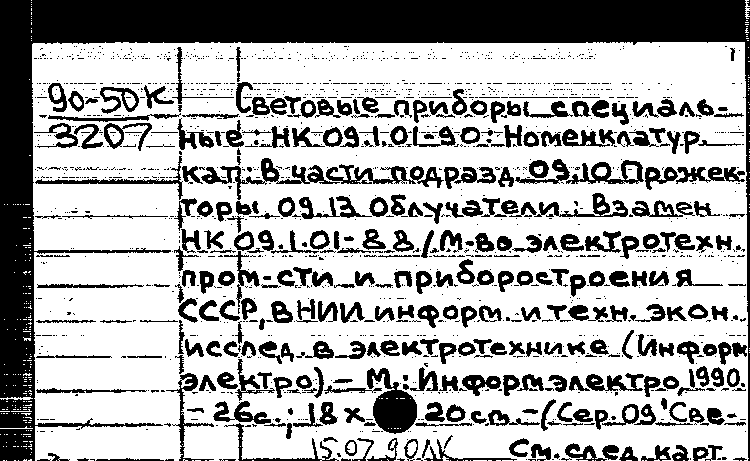 1
90-50К Световые приборы специаль-
3207 ные : НК 09.1.01-90 : Номенклатур.
кат. : В части подразд. 09.10 Прожек-
торы. 09.13 Облучатели. : Взамен
НК 09.1.01-88 / М-во электротехн.
пром-сти и приборостроения
СССР, ВНИИ информ. и техн. экон.
исслед. в электротехнике (Информ
электро). - М. : Информэлектро, 1990.
- 26с. ; 18 х 20 см. - (Сер. 09 'Све-
15.07.90ЛК См. след. карт.